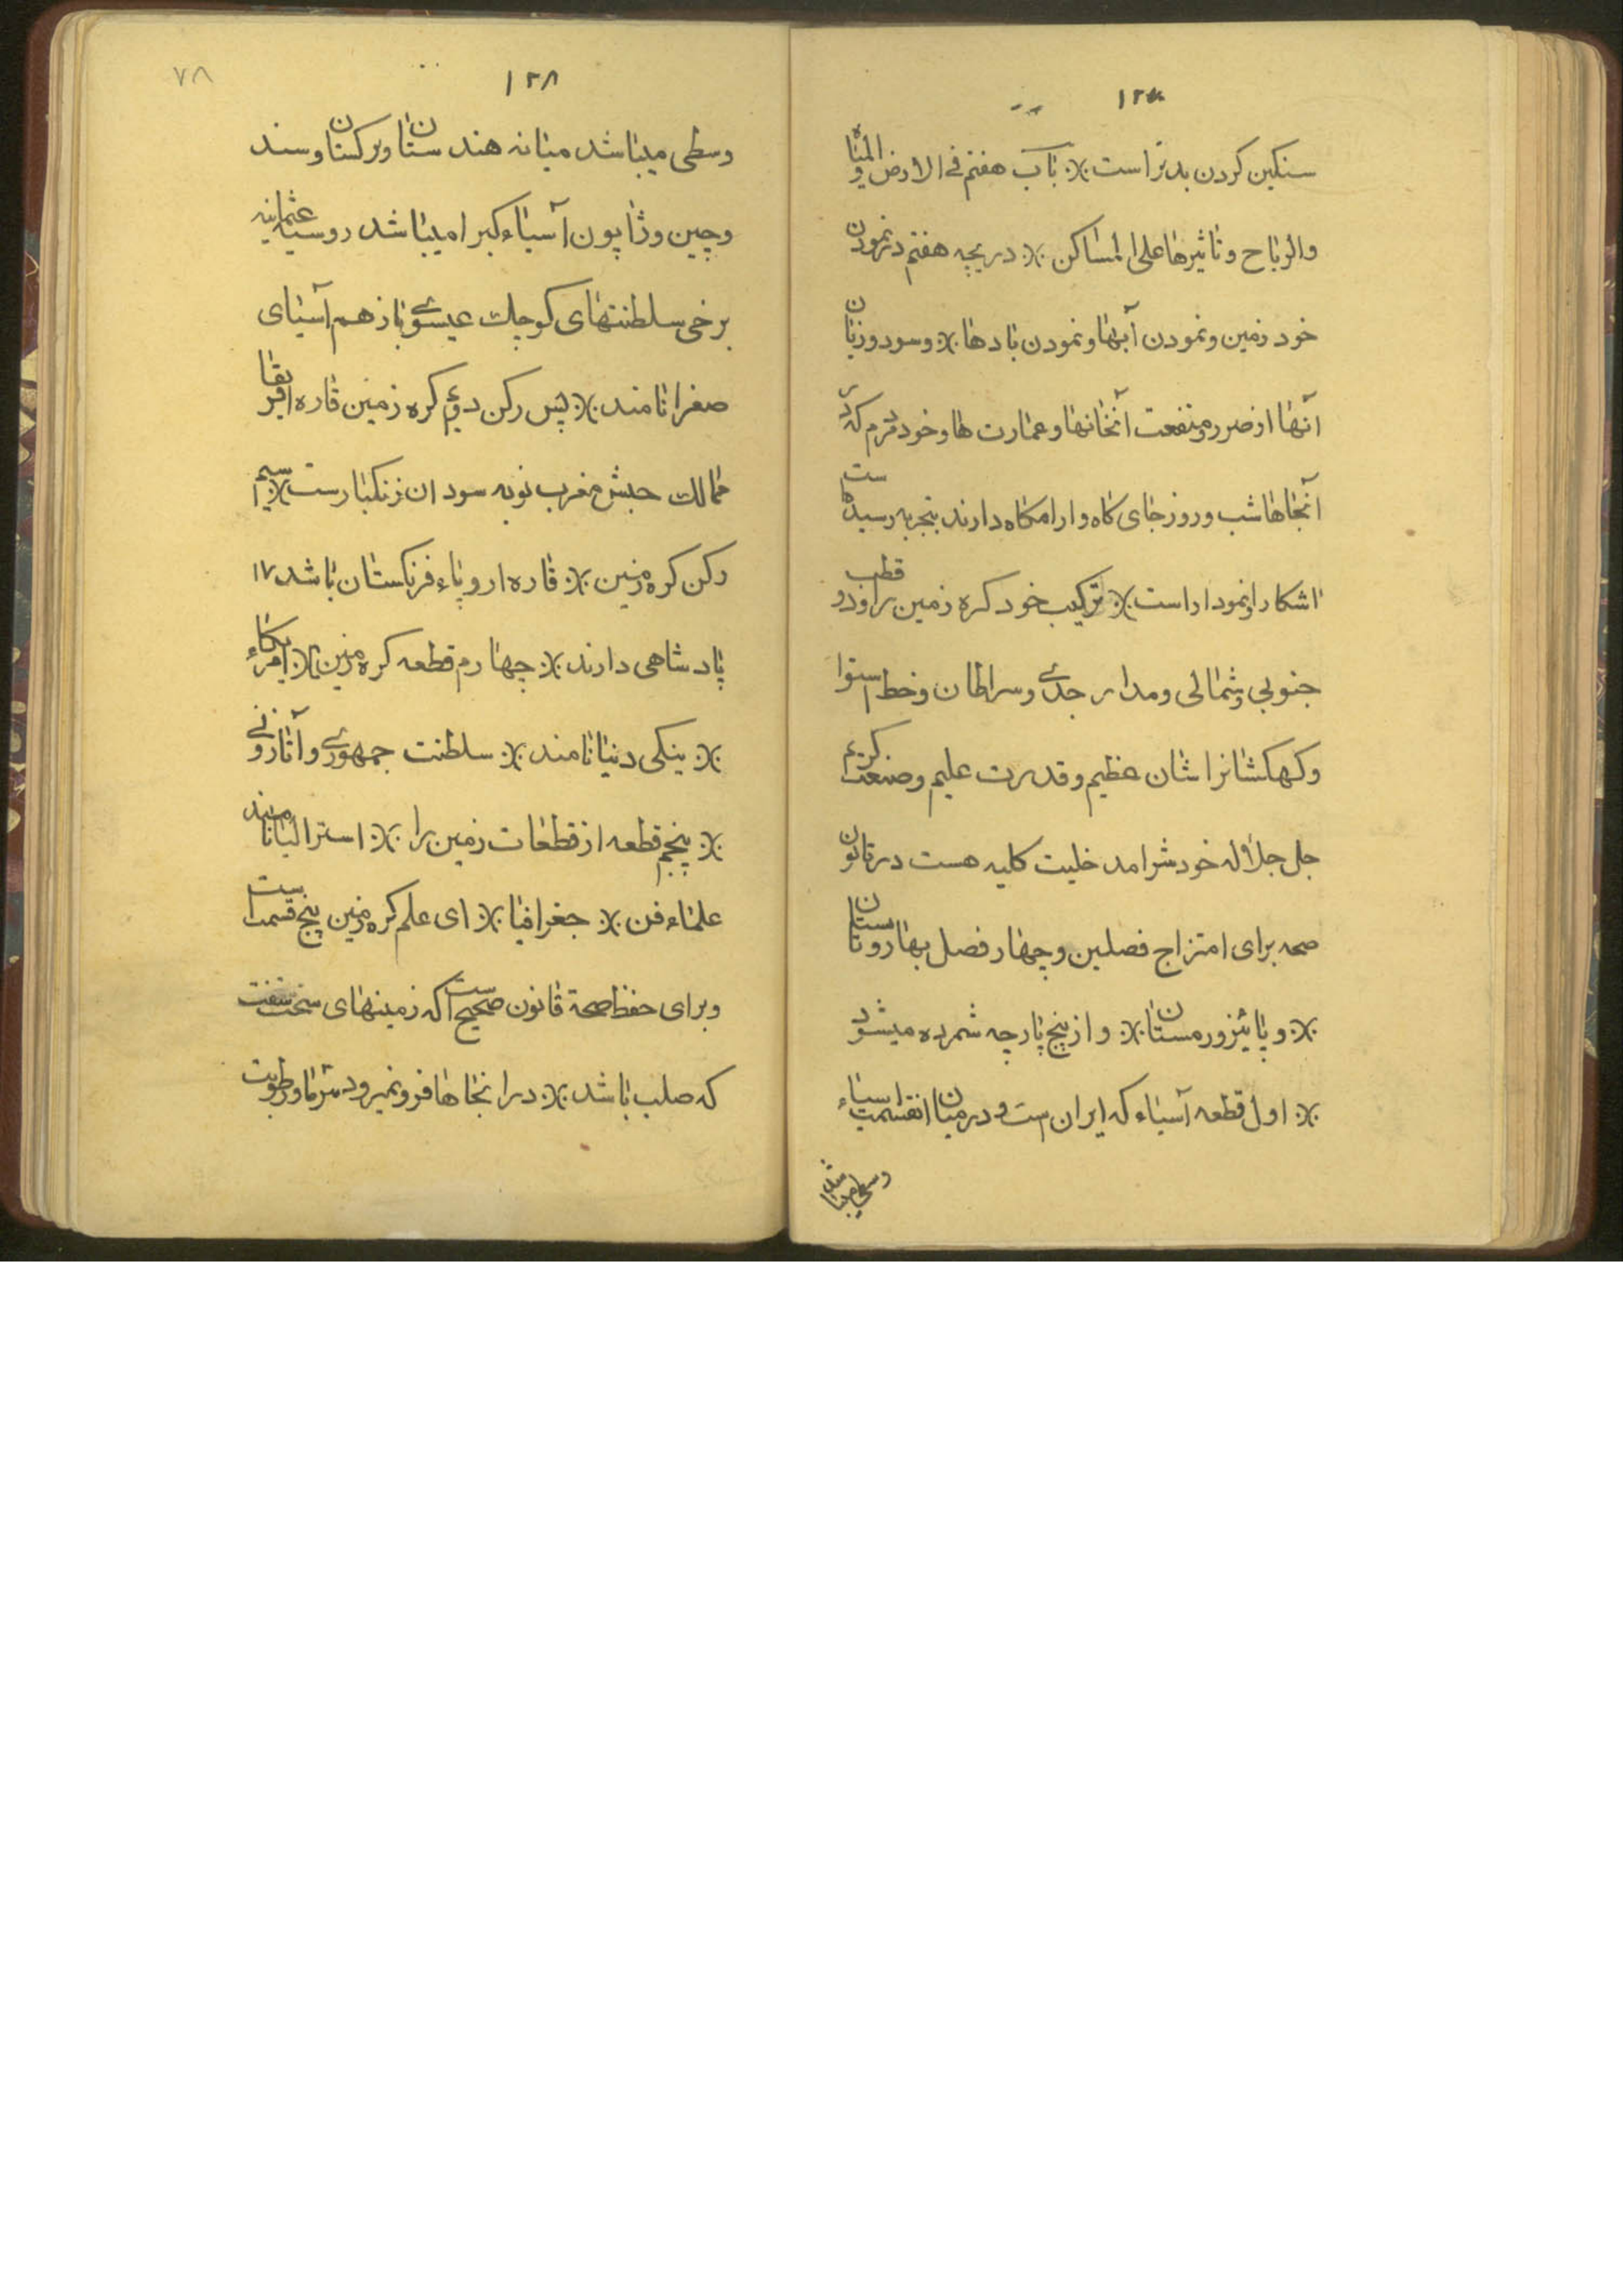 ١٢٧
سنكين كردن بدتر است ※ باب هفتم فى الارض و المياه
والرياح و تاثيرها على المساكن ※ دريچه هفتم در نمودن
خود زمين و نمودن آبها و نمودن بادها ※ و سود و زيان
آنها از ضرر و منفعت آنخانها و عمارت ها و خود مردم كه در
آنجاها شب و روز جاى كاه و ارامكاه دارند بتجربه رسيده كاست
اشكار و نمودار است ※ تركيب خود كره زمين را و دو قطب
جنوبى و شمالى و مدار جدى و سراطان و خط استوا
و كهكشانرا شان عظيم و قدرت عليم و صنعت كريم
جل جلاله خودش امد خليت كليه هست در قانون
صحه براى امتزاج فصلين و چهار فصل بهار و تابستان
※ و پائيز و زمستان ※ و از پنج پارچه شمرده ميشود
※ اول قطعه آسياء كه ايران ست و در ميان انقسمت اسياء
وسطى ميباشد
٧٨
١٢٨
وسطى ميباشد ميانه هندستان و تركستان و سند
و چين و ژاپون آسياء كبرا ميباشد روسيه عثمانيه
برخى سلطنتهاى كوچك عيسوى باز هم آسياى
صغرا نامند ※ پس ركن دويم كره زمين قاره افريقا
ممالك حبش مغرب نوبه سودان زنكبار ست ※ سيم
ركن كره زمين ※ قاره اروپاء فرنكستان باشد ١٧
پادشاهى دارند ※ چهارم قطعه كره زمين ※ امريكاء
※ ينكى دنيا نامند ※ سلطنت جمهورى و آثارونى
※ پنجم قطعه از قطعات زمين را ※ استراليا نامند
علماء فن ※ جغرافيا ※ اى علم كره زمين پنج قسمت است
و براى حفظ صحة قانون صحيح است كه زمينهاى سخت سفت
كه صلب باشد ※ در انجاها فرو نميرود سرما و رطوبت